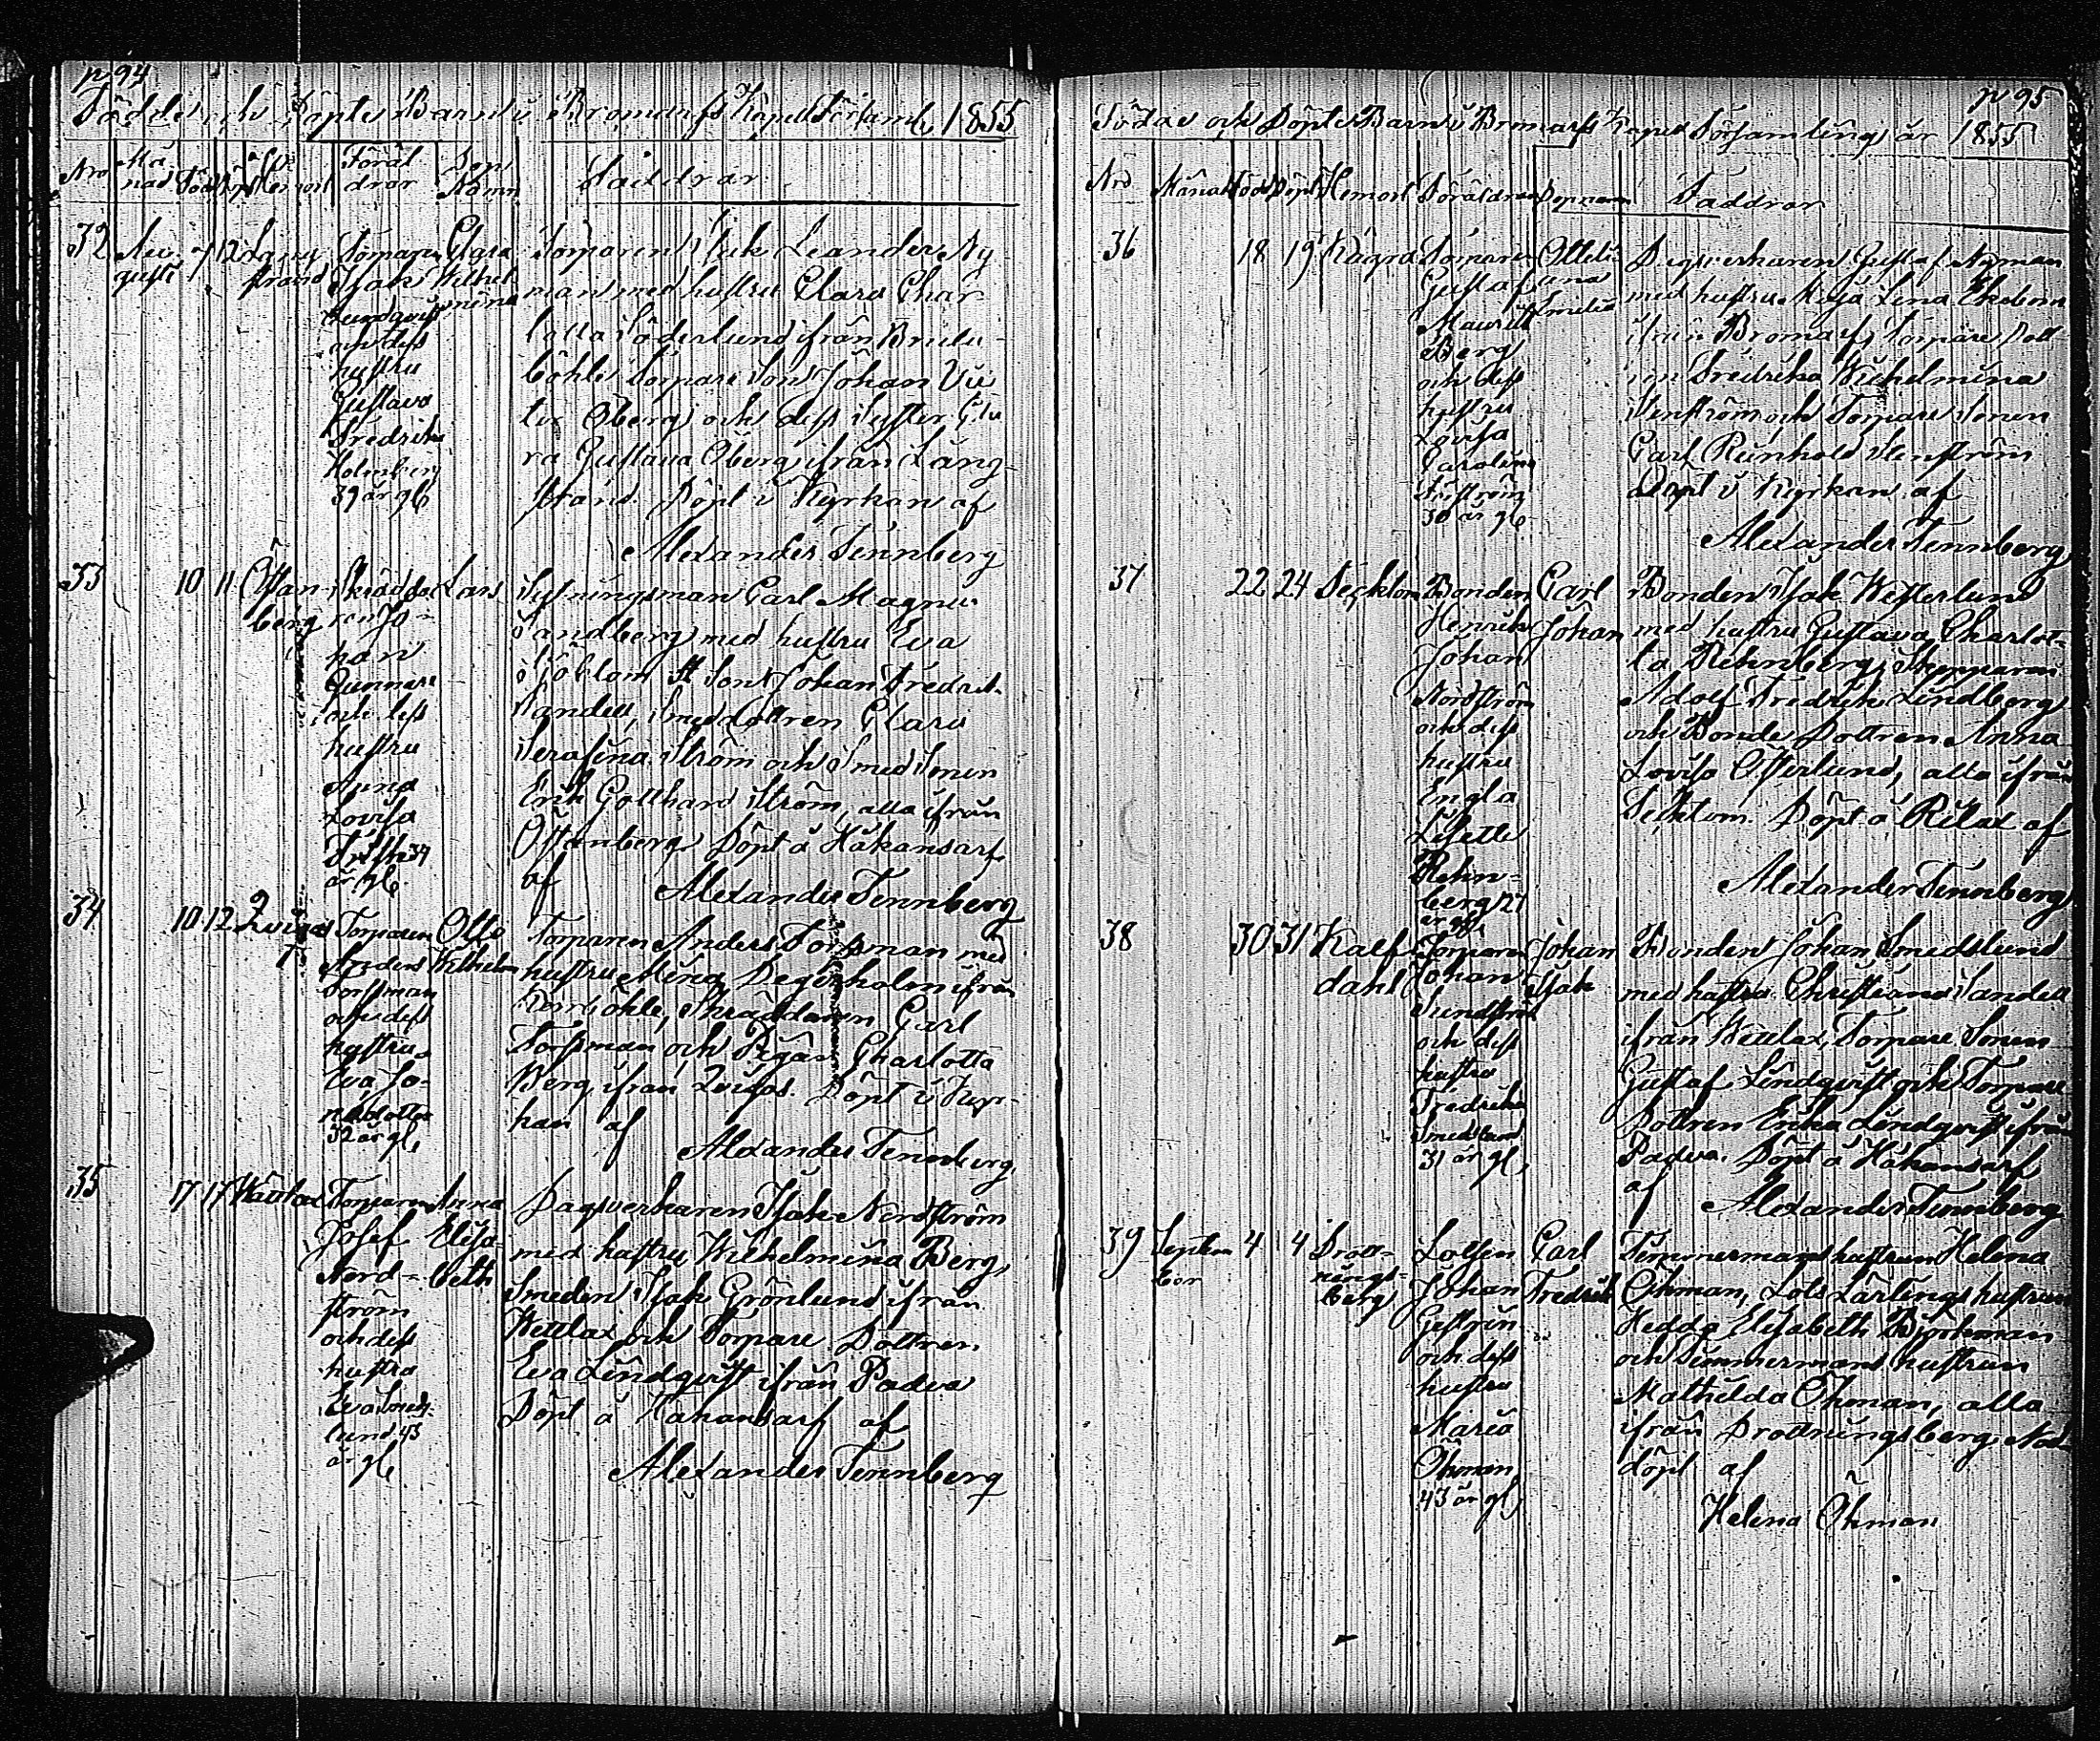 p 94
Födde och Döpte Barn i Bromarfs Kapell Församl. 1855
Nro Må nad Född Döpt Hemort Föräl drar Dop Namn Faddrar
32 Au gusti 7 12 Lång strand
Torparen Isak Lindqvist och dess hustru Gustava Fredrika Holmberg 39 år gl.
Clara Wilhel mina
Torparen Isak Leander Ny
man med hustru Clara Char
lotta Söderlund ifrån
böhle Torpare Son Johan Vic
tor Öberg och dess Syster Cla
ra Gustava Öberg ifrån Lång
strand. Döpt i Kyrkan af
Alexander Tennberg
33 10 11 Östan berg
Skräddaren Jo han Gunnar och dess hustru Anna Lovisa 34 år gl.
Lars
Carl Magnus
Sandberg med hustru Eva
Sjöblom Son Johan Fredrik
Sandell, Smedsdottren Clara
Serafina Ström och Smeds Sonen
Erik Gotthard Ström, alla ifrån
Östanberg Döpt å Håkansarf
af
Alexander Tennberg
34 10 12
Torparen Anders Forssman och dess hustru Eva 32 år gl.
Otto Wilhelm
Torparen Anders Forssman med
hustru Mina Degerholm ifrån
Skräddaren Carl
Forssman och Pigan Charlotta
Berg ifrån Döpt i Kyr-
kan af
Alexander Tennberg
35 17 17
Torparen Josef Nord-ström och dess hustru Eva lund 43 år gl
Anna Elisa beth
Dagsverkaren Isak Nordström
med hustru Wilhelmina Berg,
Smeden Isak Grönlund ifrån
Wettlax och Torpare Dottren
Eva Lindqvist ifrån Padva
Döpt å Håkansarf af
Alexander Tennberg
p 95
Födde och Döpte Barn i Bromarfs Kapell Församling år 1855
Nro Månad Född Döpt Hemort Föräldrar Dopnamn Faddrar
36 18 19 Kågra
Torparen Gustaf Maurits Berg och dess hustru Lovisa Carolina 30 år gl.
Ottili ana Emilia
Dagsverkaren Gustaf Nyman
med hustru Maja Lena Ekebom
ifrån Bromarf, Torpare Dott
ren Fredrika Wilhelmina
Stenström och Torpare Sonen
Carl Reinhold Stenström
Döpt i Kyrkan af
Alexander Tennberg
37 22 24
Bonden Henrik Johan Nordström och dess hustru Engla Lisette Rehn-berg 27 år gl.
Carl Johan
Bonden Isak Westerlund
med hustru Gustava Charlot-
ta Rehnberg, Skepparen
Adolf Fredrik Lindberg
och Bonde Dottren Anna
Lovisa Österlund, alla ifrån
Döpt å Rilax af
Alexander Tennberg
38 30 31 Kalf dahl
Torparen Johan Sundström och dess hustru Fredrika Smedslund 31 år gl,
Johan Isak
Bonden Johan Smedslund
med hustru Christiana Sandell
ifrån Wettlax, Torpare Sonen
Gustaf Lindqvist och Torpare
Dottren Erika Lindqvist ifrån
Padva. Döpt å Håkansarf
af
Alexander Tennberg
39 Septem ber 4 4 Drott- nings- berg
Lotsen Johan Gestrin och dess hustru Maria Öhman 43 år gl,
Carl Fredrik
Timmermans hustrun Helena
Öhman, Lots Lärlings hustrun
Hedda Elisabeth Björkman
och Timmermans hustrun
Mathilda Öhman, alla
ifrån Drottningsberg. Nöd-
döpt af
Helena Öhman